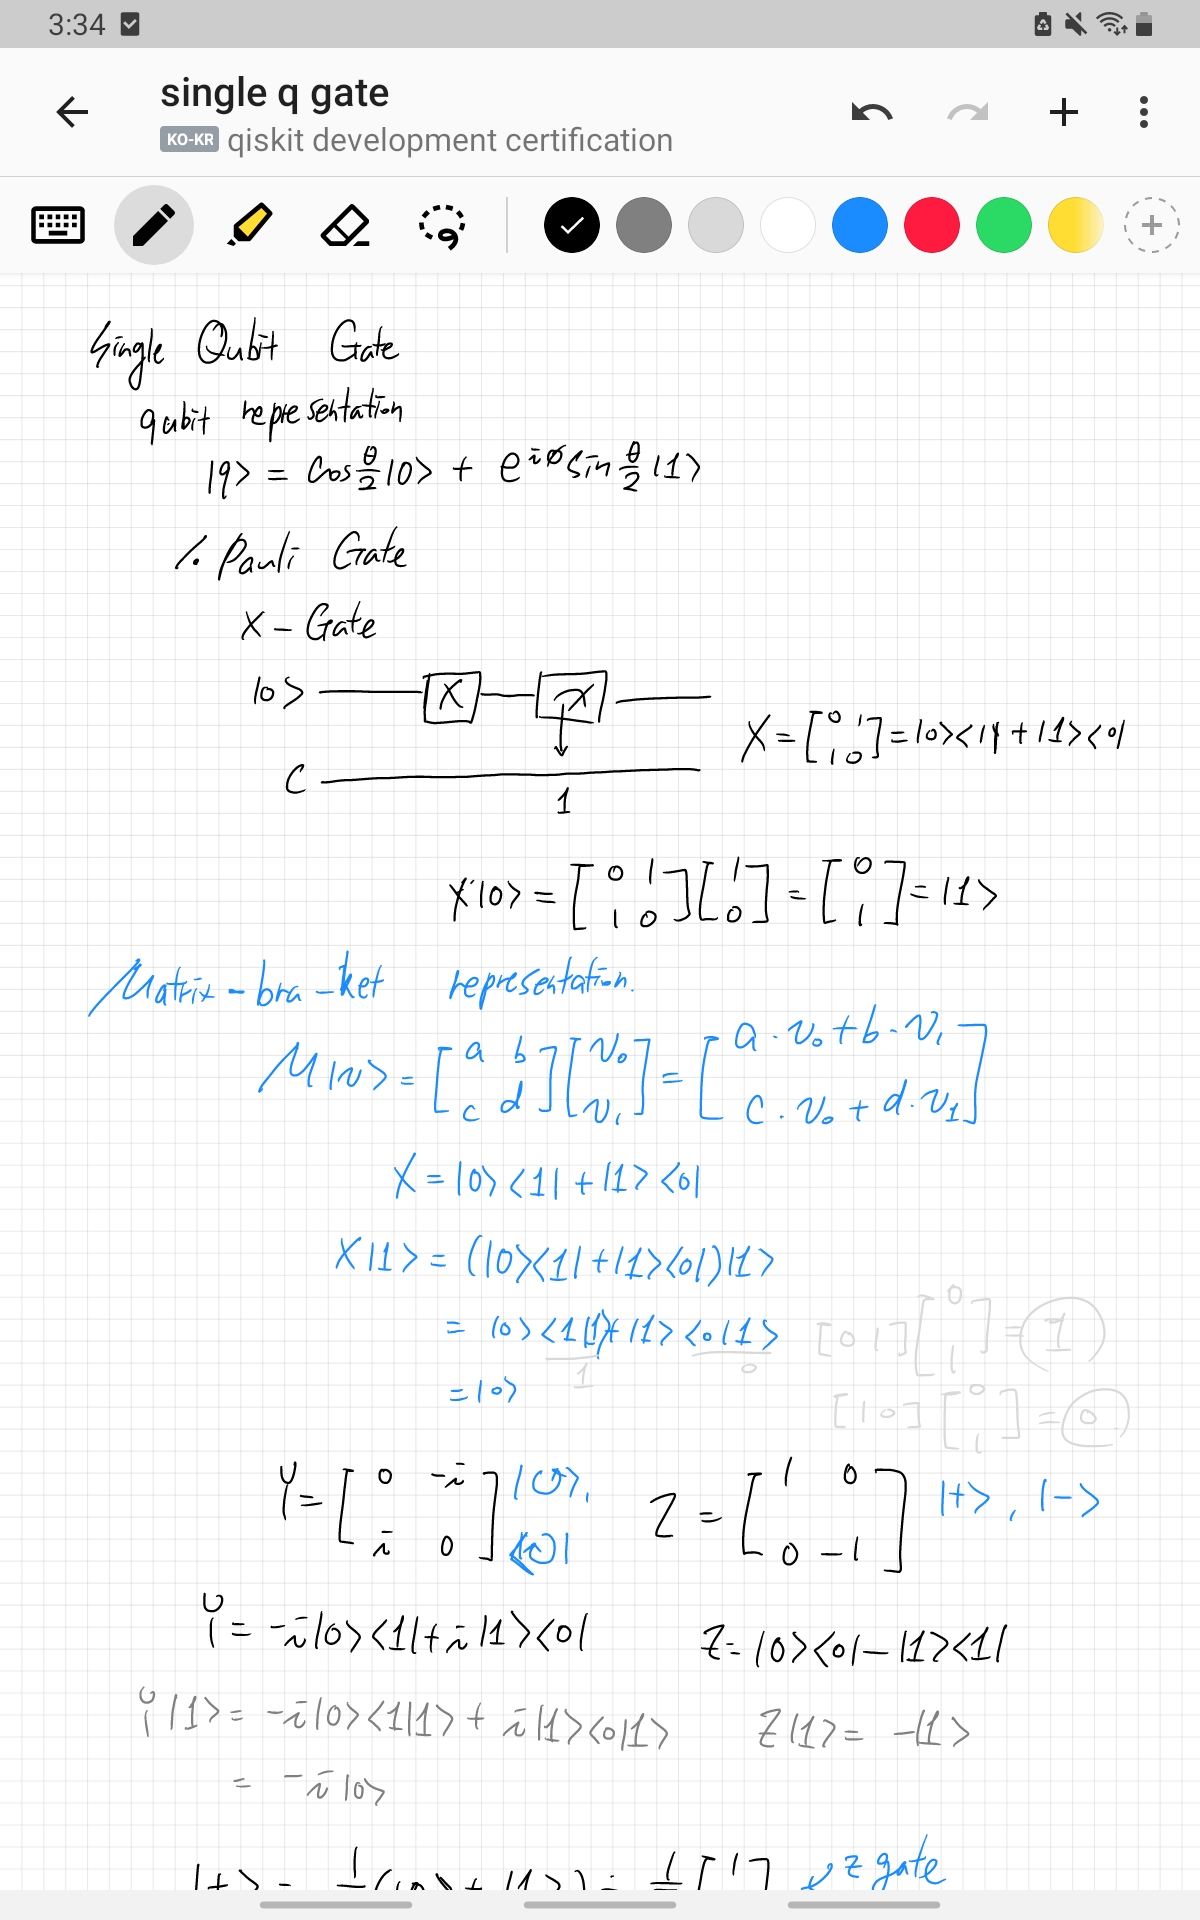 3:34
single q gate
KO-KR qiskit development certification
Single Qubit Gate
qubit representation
|q> = cos θ/2 |0> + e^iφ sin θ/2 |1>
1. Pauli Gate
X - Gate
|0> X
C
1
X = [0 1 1 0] = |0><1| + |1><0|
X|0> = [0 1 1 0][1 0] = [0 1] = |1>
Matrix - bra - ket representation.
M|v> = [a b c d][v₀ v₁] = [a·v₀ + b·v₁ c·v₀ + d·v₁]
X = |0><1| + |1><0|
X|1> = (|0><1| + |1><0|)|1>
= |0><1|1> + |1><0|1>
1 0
= |0>
[0 1][0 1] = 1
[1 0][0 1] = 0
Y = [0 -i i 0] |↺>, Z = [1 0 0 -1] |+>, |->
Y = -i|0><1| + i|1><0| Z = |0><0| - |1><1|
Y|1> = -i|0><1|1> + i|1><0|1> Z|1> = -|1>
= -i|0>
z gate